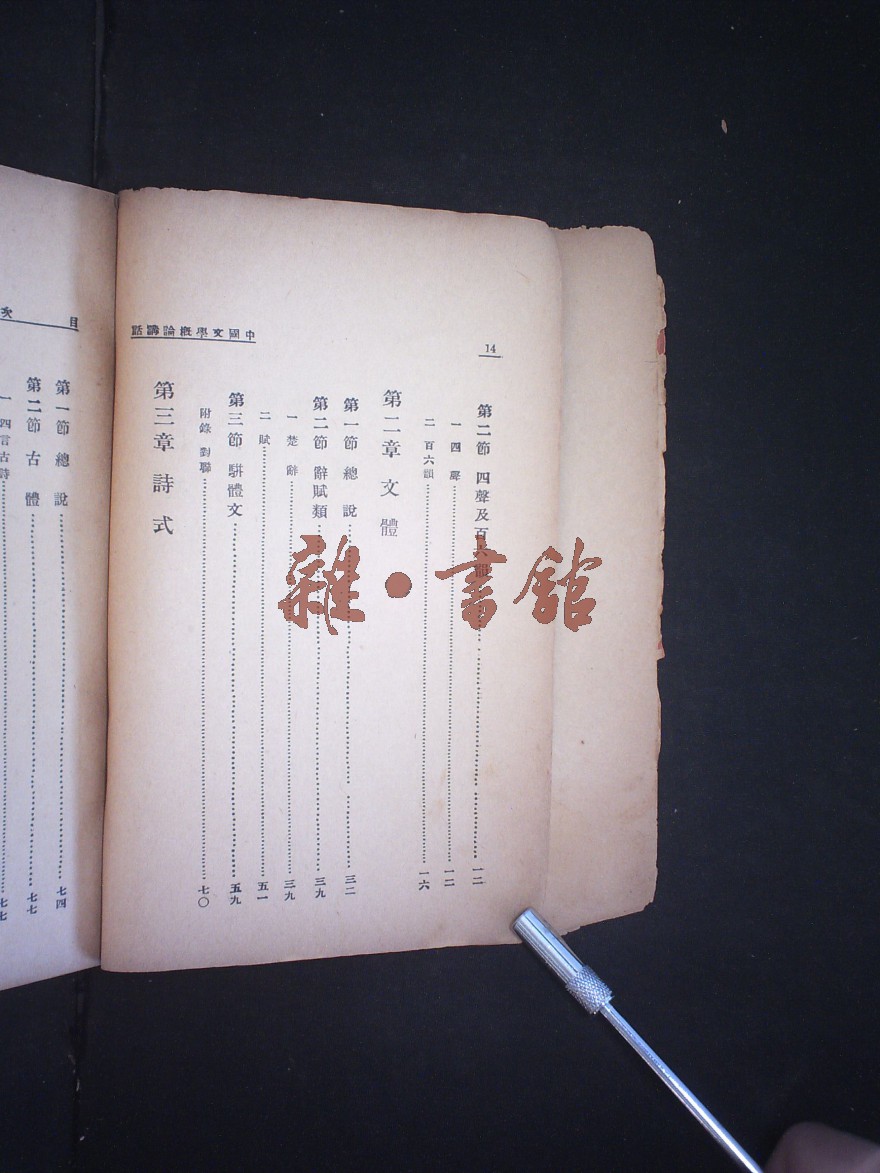 14
中國文學概論講話
第二節 四聲及百六韻 一二
一 四聲 一二
二 百六韻 一六
第二章 文體
第一節 總說 三二
第二節 辭賦類 三九
一 楚辭 三九
二 賦 五一
第三節 駢體文 五九
附錄 對聯 七〇
第三章 詩式
目次
第一節 總說 七四
第二節 古體 七七
一 四言古詩 七七
雜·書館